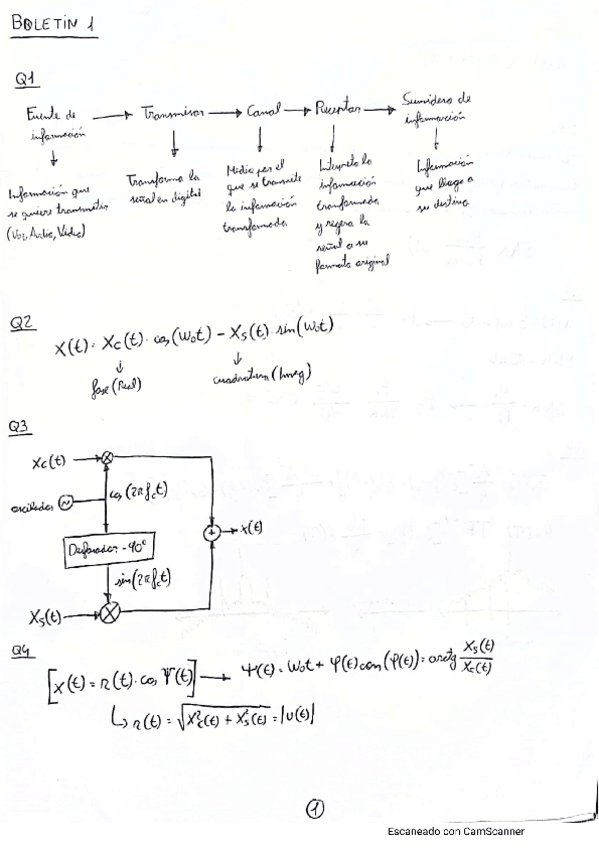 BOLETIN 1
Q1
Fuente de información → Transmisor → Canal → Receptor → Sumidero de información
Información que se quiere transmitir (Voz, Audio, Video)
Transforma la señal en digital
Medio por el que se transmite la información transformada
Interpreta la información transformada y regera la señal a su formato original
Información que llega a su destino
Q2
X(t) = Xc(t) · cos(ω₀t) − Xs(t) · sin(ω₀t)
fase (Real)
cuadratura (Imag)
Q3
Xc(t)
cos(2πfct)
oscilador
x(t)
Desfasador -90°
sin(2πfct)
Xs(t)
Q4
[x(t) = r(t) · cos Ψ(t)] → Ψ(t) = ω₀t + φ(t) con (φ(t)) = arctg Xs(t)/Xc(t)
r(t) = √(Xc²(t) + Xs²(t)) = |v(t)|
1
Escaneado con CamScanner